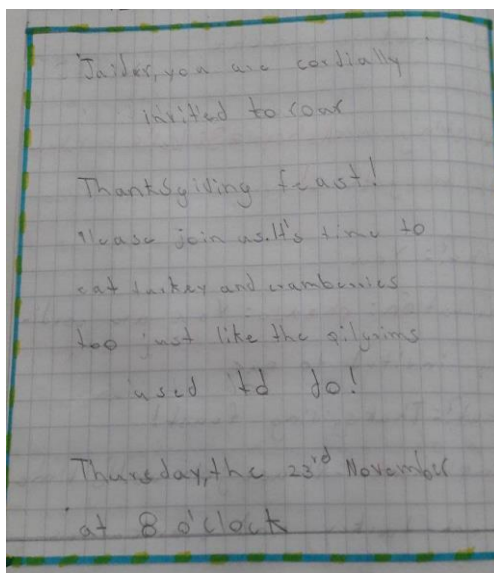 Jaider, you are cordially
invited to
Thanksgiving feast!
Please join us. It's time to
eat turkey and cramberries
too just like the pilgrims
used to do!
Thursday, the 23rd November
at 8 o'clock